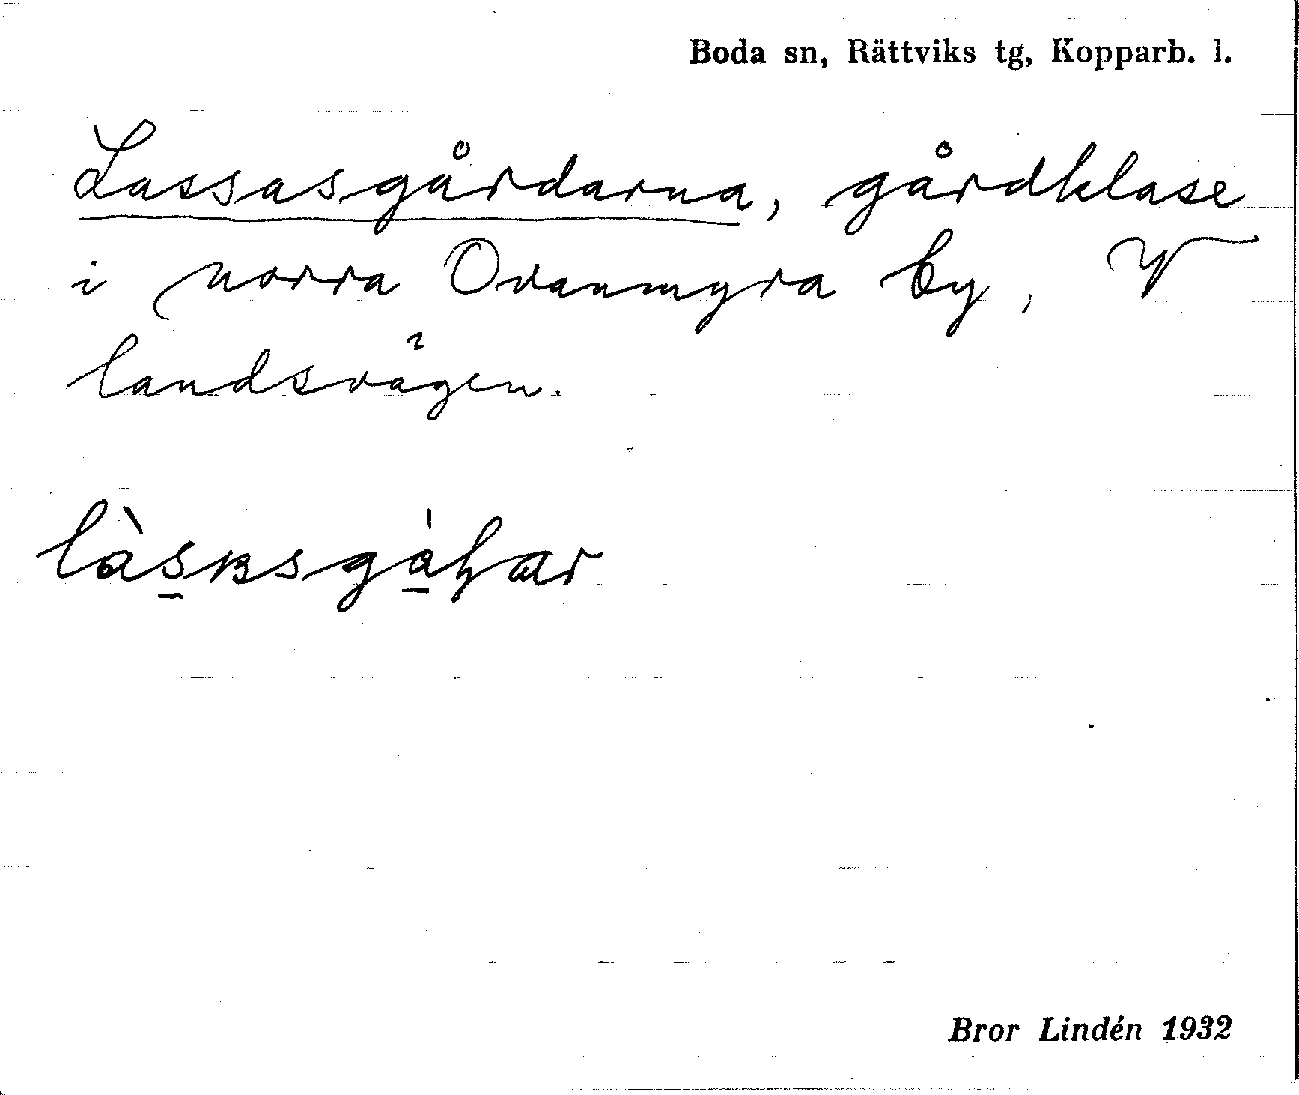 Boda sn, Rättviks tg, Kopparb. l.
Lassasgårdarna, gårdklase
i norra Ovanmyra by, V
landsvägen.
Bror Lindén 1932